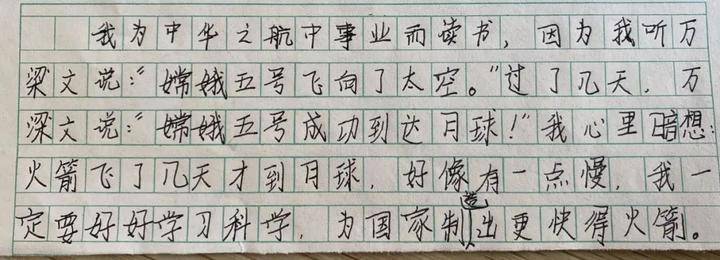 我为中华之航中事业而读书，因为我听万
梁文说：“嫦娥五号飞向了太空。”过了几天，万
深文说：“嫦娥五号成功到达月球！”我心里暗想：
火箭飞了几天才到月球，好像有一点慢，我一
定要好好学习科学，为国家制造出更快得火箭。